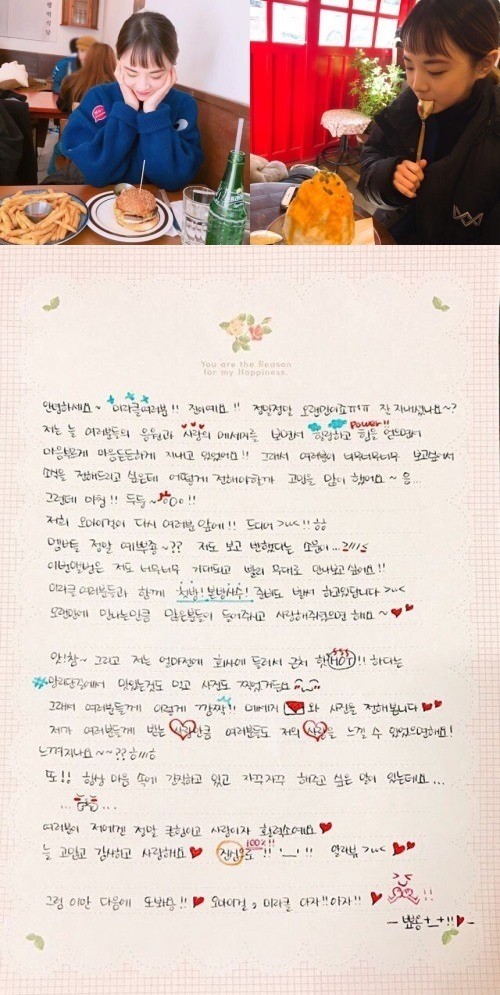 You are the Reason
for my Happiness.
안녕하세요~ 미라클여러분!! 진이예요!! 정말정말 오랜만이죠ㅠㅠ 잘 지내셨나요~?
저는 늘 여러분들의 응원과 사랑의 메세지를 보면서 힐링하고 힘을 얻으면서
Power!!
마음부르게 마음든든하게 지내고 있었어요!! 그래서 여러분이 너무너무너무 보고싶어서
소식을 전해드리고 싶은데 어떻게 전해야할까 고민을 많이 했어요~ 음...
그런데 마침!! 두둥~
저희 오마이걸이 다시 여러분 앞에!! 드디어 >_<!! 흐흐
멤버들 정말 예쁘죠~?? 저도 보고 반했다는 소문이...
이번앨범은 저도 너무너무 기대되고 빨리 무대로 만나보고싶어요!!
미라클 여러분들과 함께 첫방! 본방사수! 준비도 벌써 하고있답니다 >_<
오랜만에 만나는만큼 많은분들이 들어주시고 사랑해주셨으면 해요~
앗!참~ 그리고 저는 얼마전에 회사에 들러서 근처 핫(HOT)!! 하다는
#망리단길에서 맛있는것도 먹고 사진도 찍었거든요
그래서 여러분들께 이렇게 깜짝!! 메세지와 사진을 전해봅니다
제가 여러분들께 받는 사랑만큼 여러분들도 저의 사랑을 느낄 수 있었으면해요!
느껴지나요~~??
또!! 항상 마음 속에 간직하고 있고 자꾸자꾸 해주고 싶은 말이 있는데요...
여러분이 저에겐 정말 큰힘이고 사랑이자 활력소예요
늘 고맙고 감사하고 사랑해요 진심으로!! '_'!! 알라뷰 >_<
100%!!
그럼 이만 다음에 또봐용!! 오마이걸, 미라클 아자!!아자!!
- 뾰옹 +_+!! -